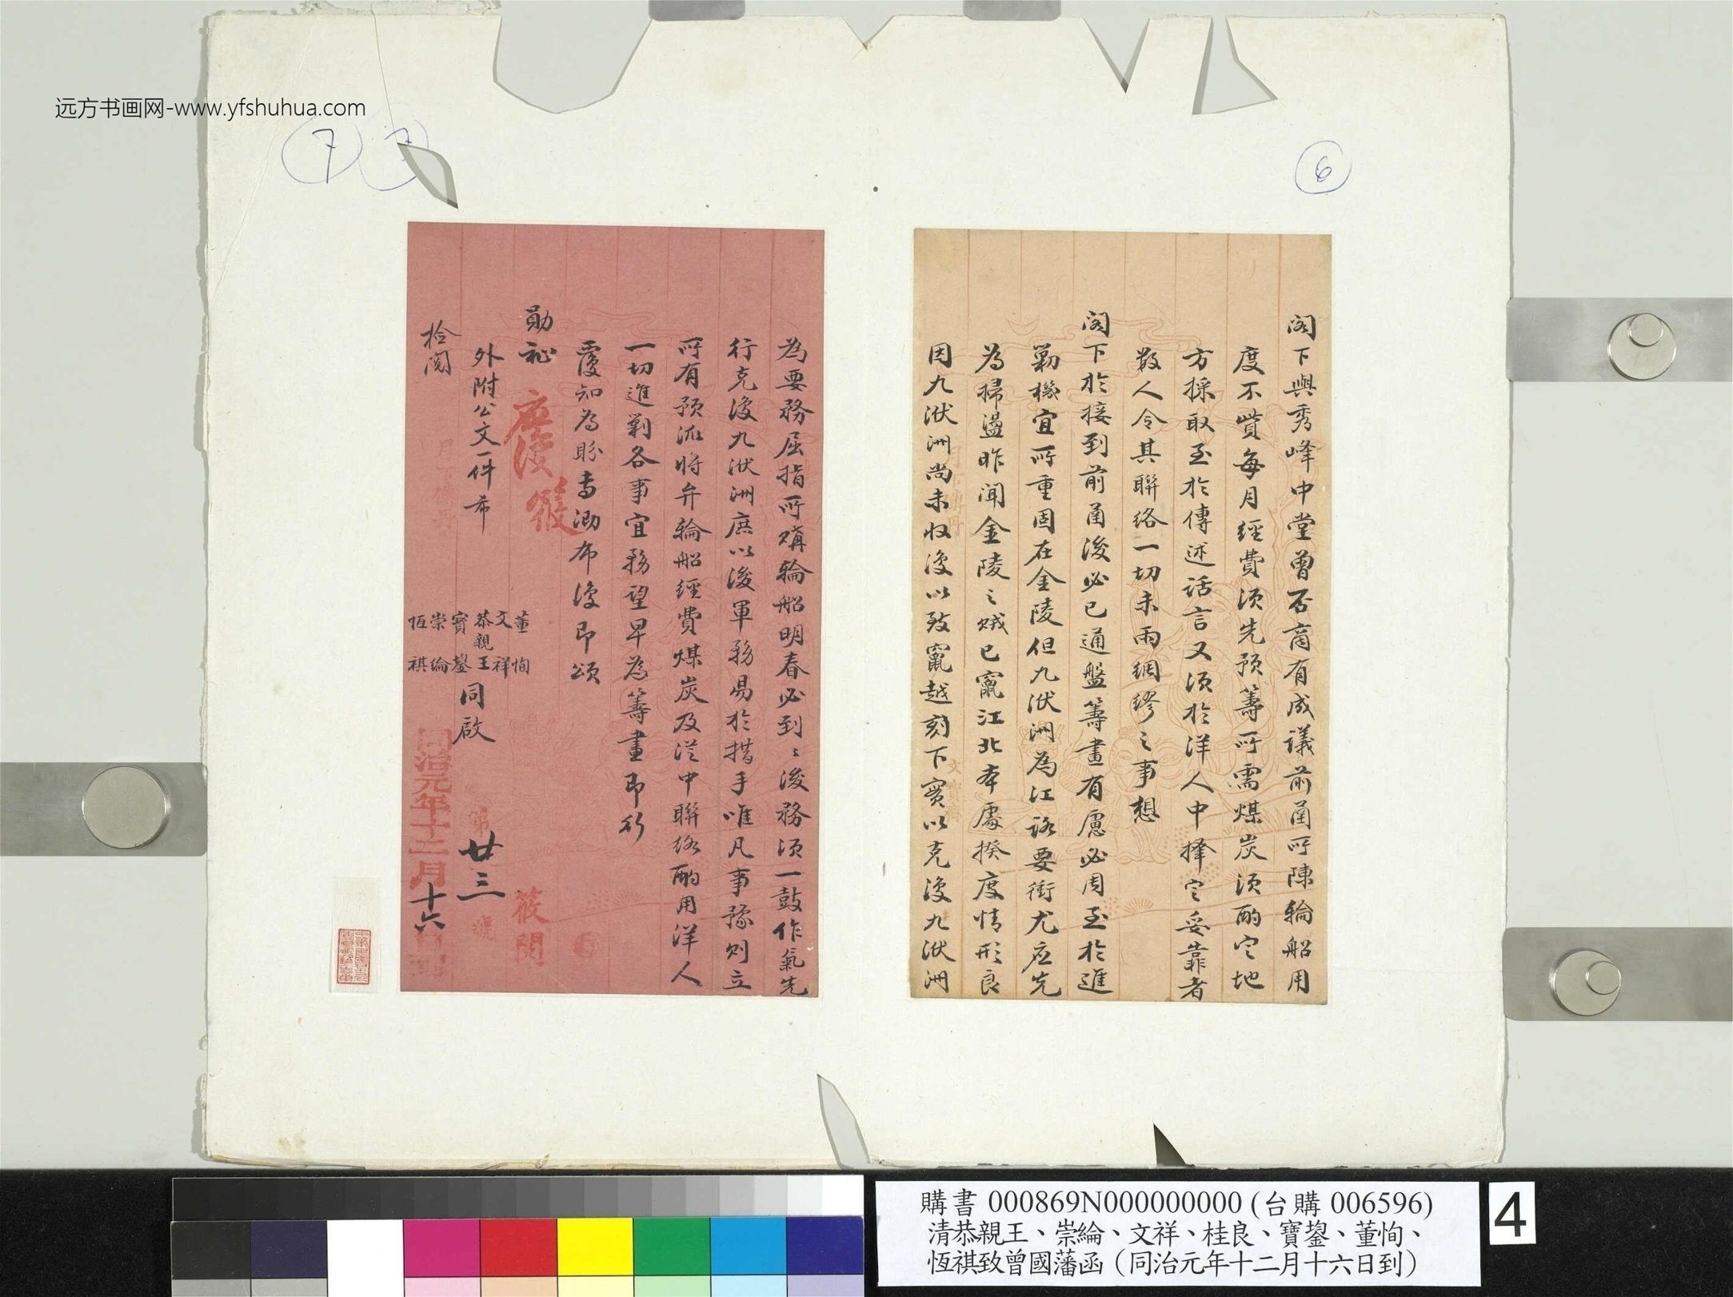 远方书画网-www.yfshuhua.com
7
7
6
阁下與秀峰中堂曾否商有成議前函所陳輪船用
度不貲每月經費須先預籌所需煤炭須酌定地
方採取至於傳述話言又須於洋人中擇定妥靠者
數人令其聯絡一切未雨綢繆之事想
阁下於接到前函後必已通盤籌畫有慮必周至於進
勦機宜所重固在金陵但九洑洲為江路要衝尤應先
為掃盪昨聞金陵之賊已竄江北本處揆度情形良
因九洑洲尚未收復以致竄越刻下實以克復九洑洲
為要務屈指所購輪船明春必到〻後務須一鼓作氣先
行克復九洑洲庶以後軍務易於措手唯凡事豫則立
所有預派將弁輪船經費煤炭及從中聯絡酌用洋人
一切進剿各事宜務望早為籌畫即祈
覆知為盼耑泐布復即頌
勛祉
外附公文一件希
檢閱
董恂
文祥
恭親王
寶鋆
崇綸
恆祺
同啟
第廿三號
同治元年十二月十六日到
購書 000869N000000000 (台購 006596)
清恭親王、崇綸、文祥、桂良、寶鋆、董恂、
恆祺致曾國藩函（同治元年十二月十六日到）
4